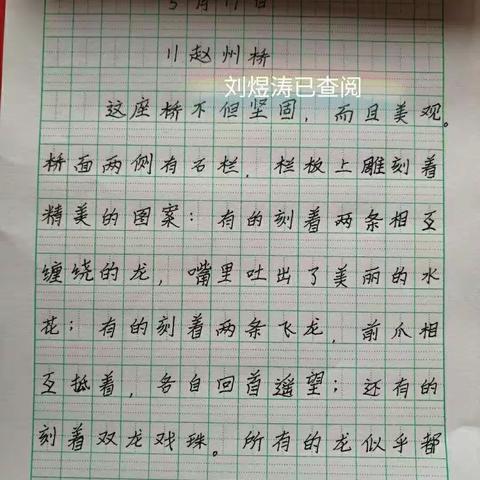 5月17日
11赵州桥
刘煜涛已查阅
这座桥不但坚固，而且美观。
桥面两侧有石栏，栏板上雕刻着
精美的图案：有的刻着两条相互
缠绕的龙，嘴里吐出了美丽的水
花；有的刻着两条飞龙，前爪相
互抵着，各自回首遥望；还有的
刻着双龙戏珠。所有的龙似乎都